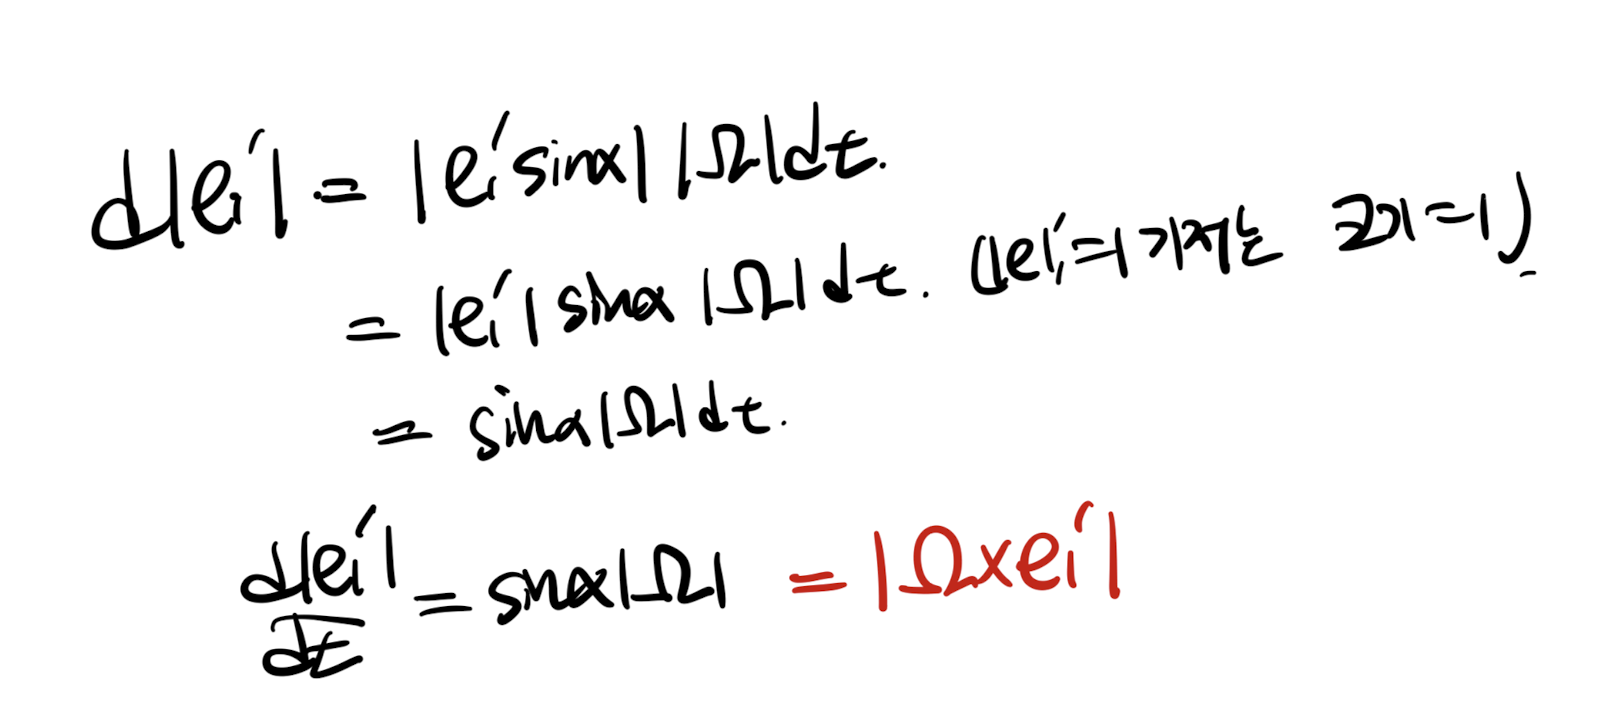 d|ei'| = |ei' sinα| |Ω|dt.
= |ei'| sinα |Ω|dt. (|ei'|=1 기저는 크기=1)
= sinα|Ω|dt.
d|ei'|/dt = sinα|Ω| = |Ω×ei'|